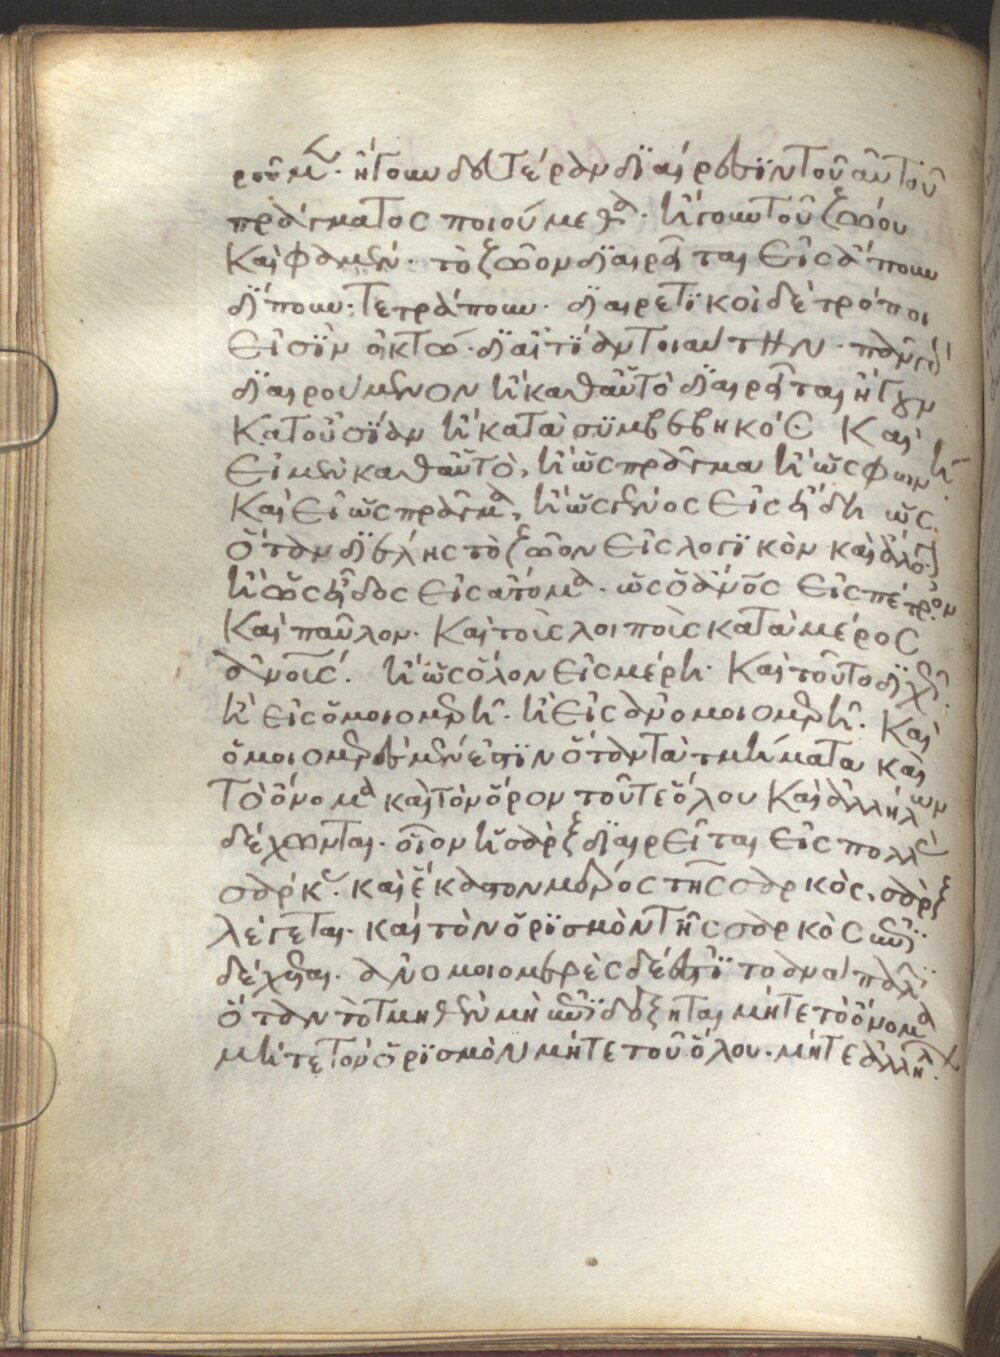 ροῦμεν· ἤγουν δευτέραν διαίρεσϊν τοῦ αὐτοῦ
πράγματος ποιούμεθα· ἢ γοῦν τοῦ ζώου
καὶ φαμεν· τὸ ζῶον διαιρεῖται εἰς ἄπουν
δίπουν· τετράπουν· διαιρετϊκοὶ δὲ τρόποι
εἰσϊν ὀκτώ· διαιτϊαν τοιαύτην· πᾶν τὸ
διαιρούμενον ἢ καθ' αὑτὸ διαιρεῖται ἤγουν
κατ' οὐσίαν ἢ κατὰ συμβεβηκός καὶ
εἰ μὲν καθ' αὑτὸ, ἢ ὡς πρᾶγμα ἢ ὡς φωνὴ·
καὶ εἰ ὡς πρᾶγμα, ἢ ὡς γένος εἰς εἴδη ὡς
ὅταν διέλης τὸ ζῶον εἰς λογϊκὸν καὶ ἄλογον
ἢ ὡς εἶδος εἰς ἄτομα· ὡς ὁ ἄνος εἰς πέτρον
καὶ παῦλον· καὶ τοῖς λοιποῖς κατὰ μέρος
ἄνοις· ἢ ὡς ὅλον εἰς μέρη· καὶ τοῦτο διχῆ·
ἢ εἰς ὁμοιομερῆ· ἢ εἰς ἀνομοιομερῆ· καὶ
ὁμοιομερὲς μέν ἐστϊν ὅταν τὰ τμήματα καὶ
τὸ ὄνομα καὶ τὸν ὅρον τοῦ τε ὅλου καὶ ἀλλήλων
δέχωνται· οἷον ἡ σὰρξ διαιρεῖται εἰς πολλὰς
σάρκας· καὶ ἕκαστον μέρος τῆς σαρκὸς, σὰρξ
λέγεται· καὶ τὸν ὁρϊσμὸν τῆς σαρκὸς
δέχεται· ἀνομοιομερὲς δέ ἐστϊ τὸ ἀνάπαλϊν
ὅταν τὸ τμηθὲν μὴ δέξηται μήτε τὸ ὄνομα
μήτε τὸν ὁρϊσμὸν μήτε τοῦ ὅλου· μήτε ἀλλήλων·